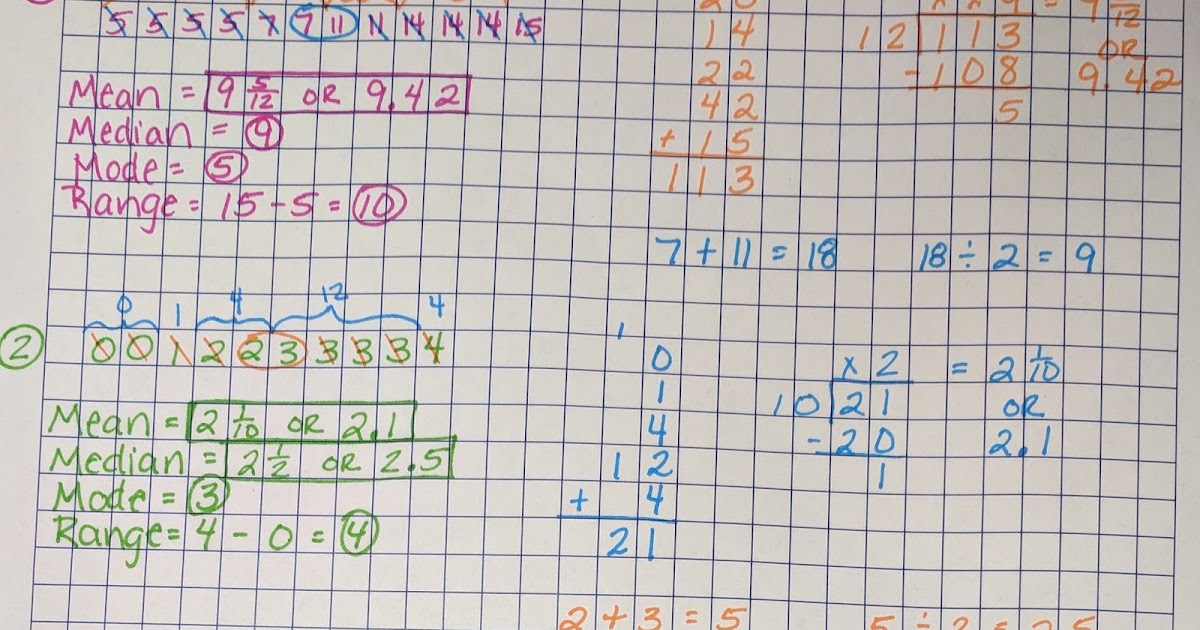 5 5 5 5 7 7 11 11 14 14 14 15
Mean = 9 5/12 OR 9.42
Median = 9
Mode = 5
Range = 15 - 5 = 10
14
22
42
+ 15
113
12 113 OR
- 108 9.42
5
7 + 11 = 18 18 ÷ 2 = 9
0 1 4 12 4
2 0 0 1 2 2 3 3 3 3 4
Mean = 2 1/10 OR 2.1
Median = 2 1/2 OR 2.5
Mode = 3
Range = 4 - 0 = 4
1
0
1
4
12
+ 4
21
x 2 = 2 1/10
10 21 OR
- 20 2.1
1
2 + 3 = 5 5 ÷ 2 = 2.5